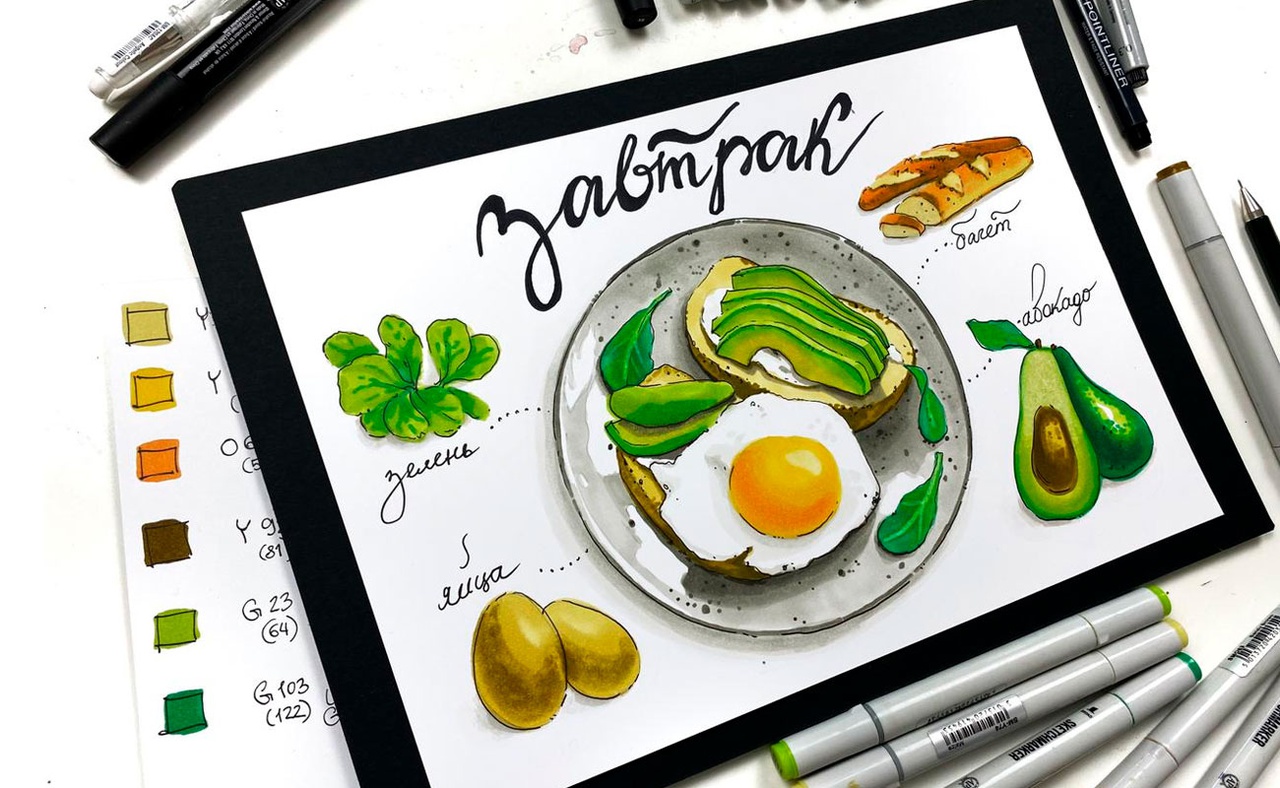 завтрак
багет
авокадо
зелень
яйца
Y
Y
O 6
Y 9
(81
G 23
(64)
G 103
(122)
POINTLINER
SKETCHMARKER